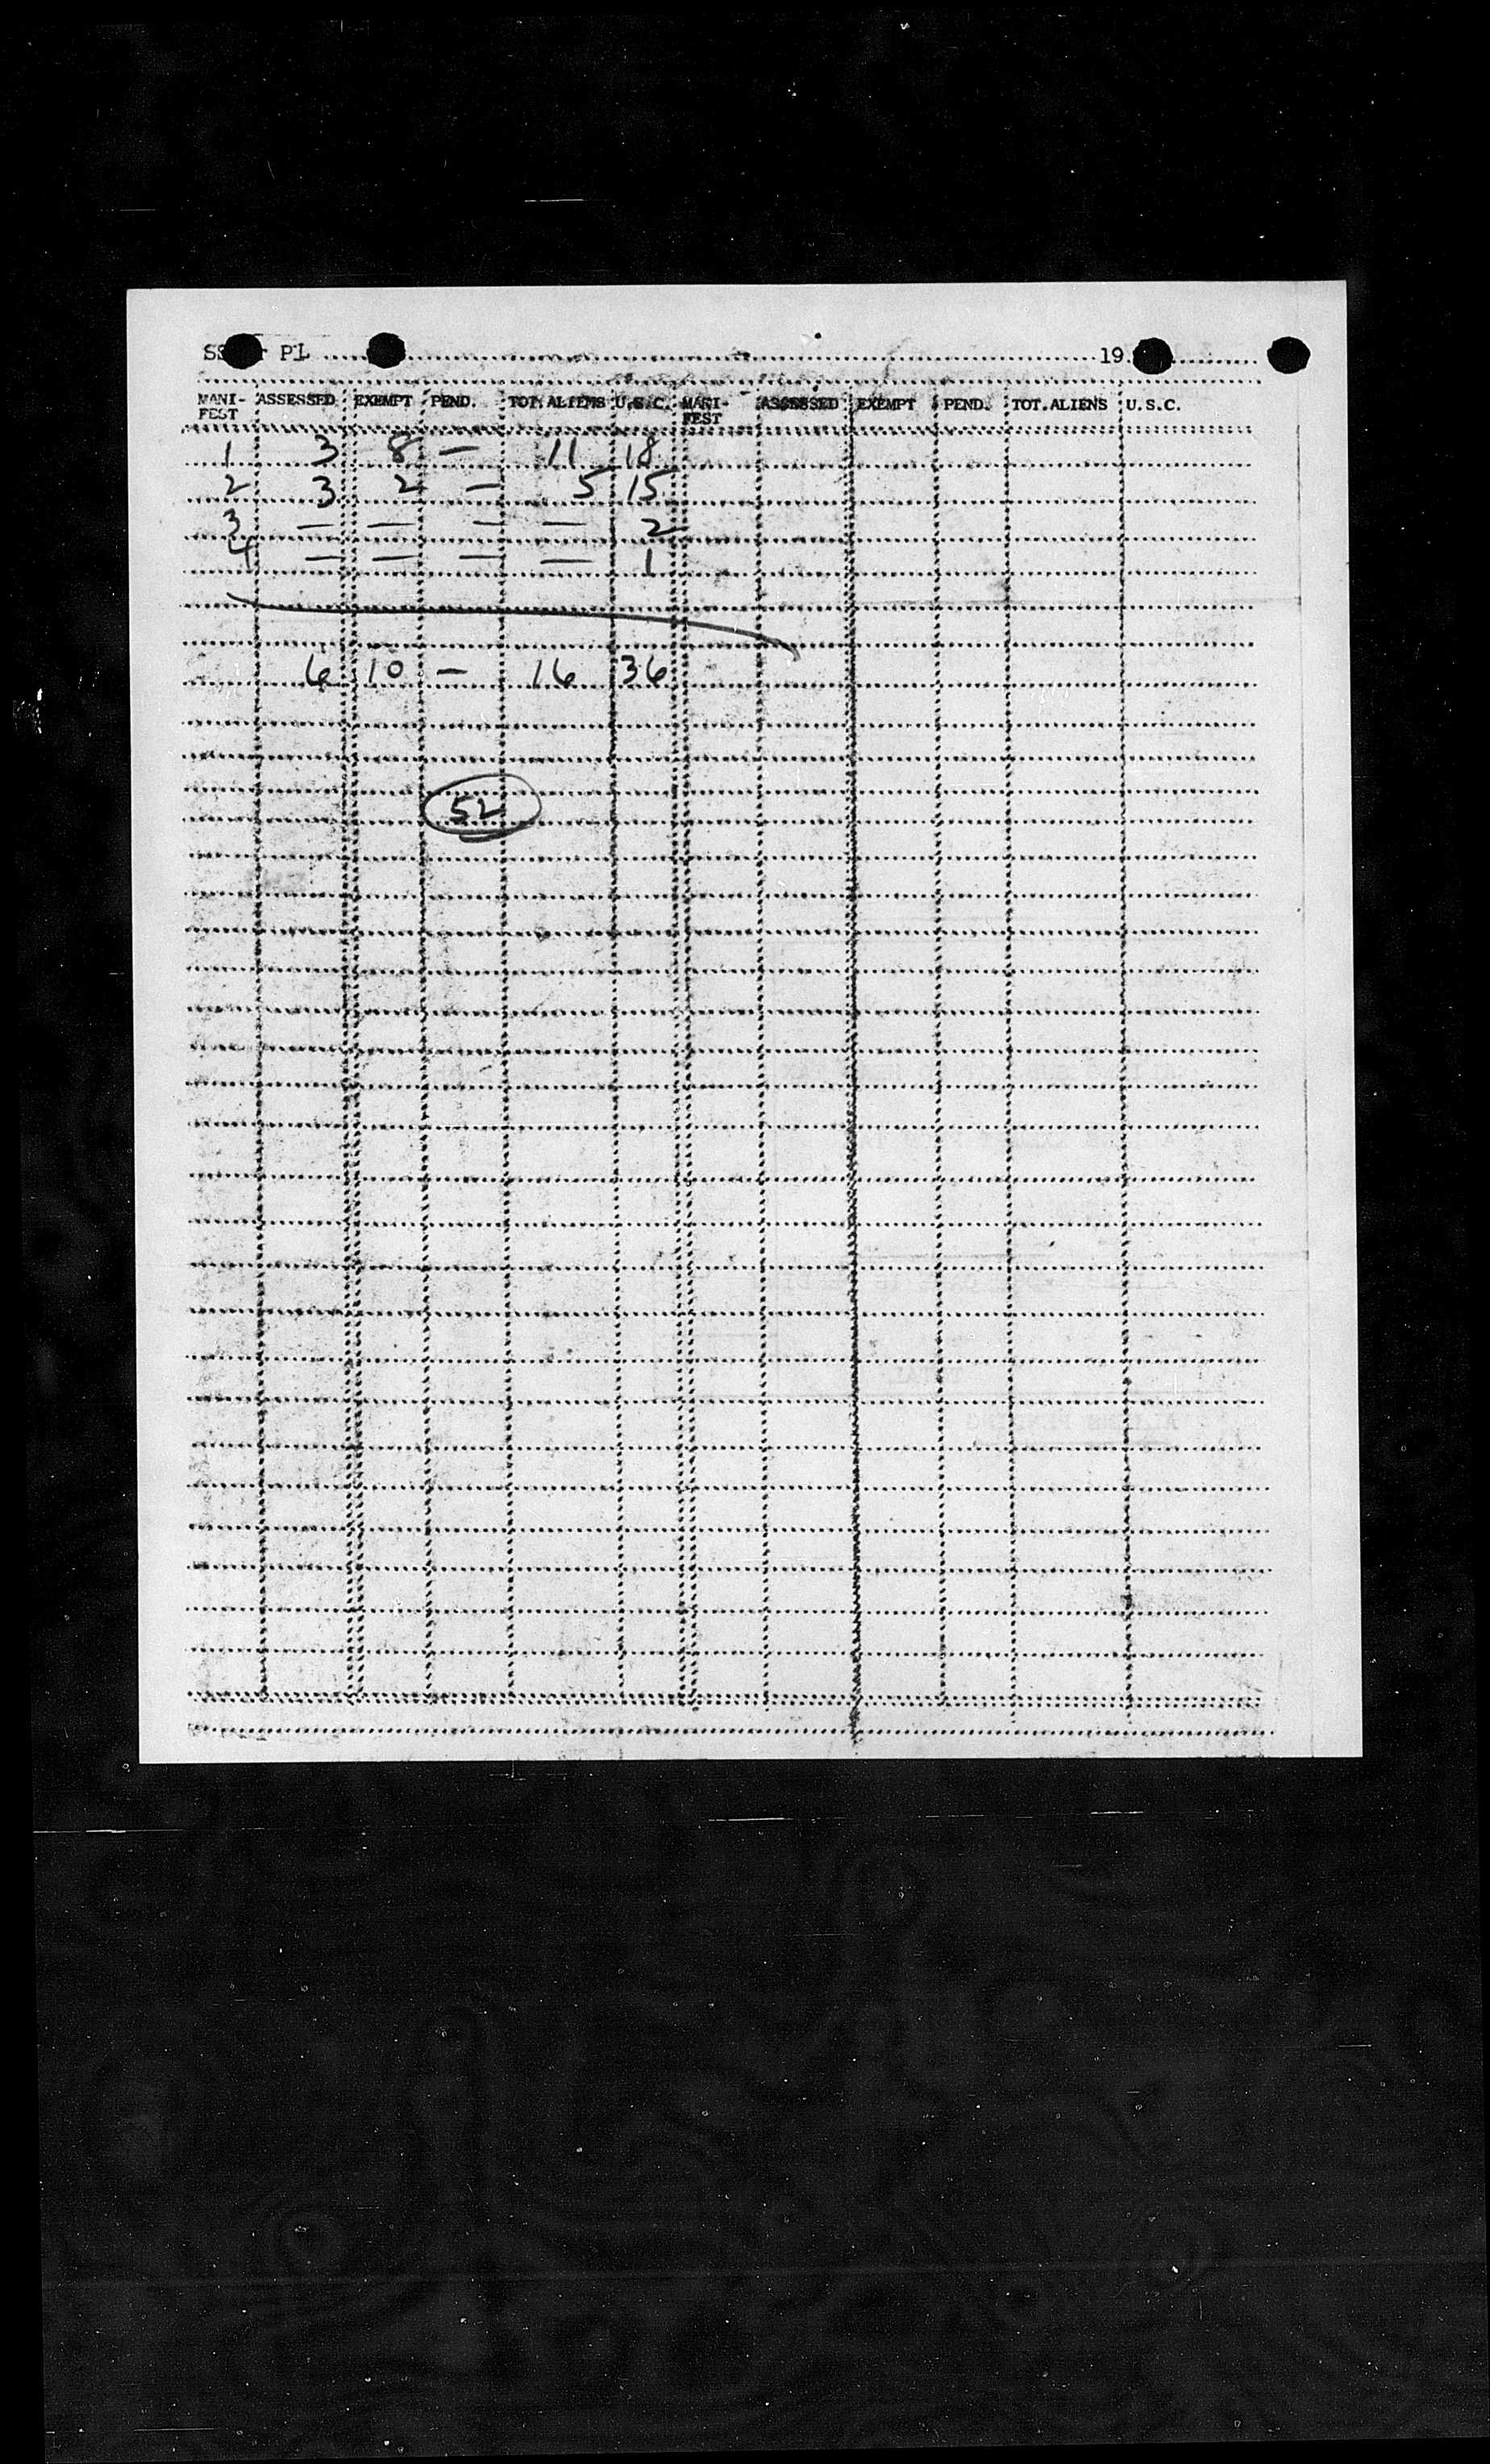 SS or PL ........ 19.....
MANI- ASSESSED EXEMPT PEND. TOT. ALIENS U.S.C. MANI- ASSESSED EXEMPT PEND. TOT. ALIENS U.S.C.
FEST FEST
1 3 8 — 11 18
2 3 2 — 5 15
3 — — — — 2
4 — — — — 1
6 10 — 16 36
52